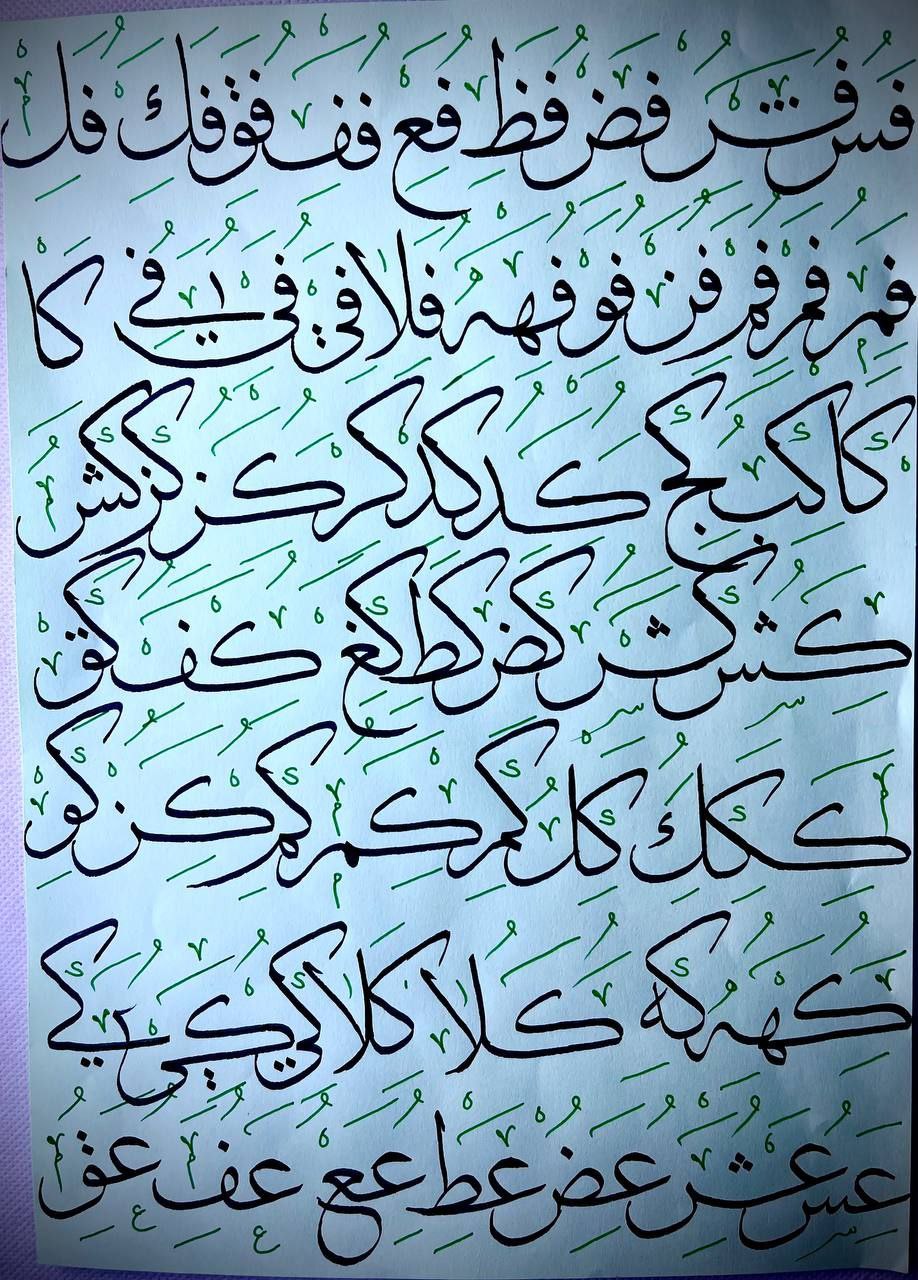 فس فش فض فظ فع فف فق فك فل
فمر فمر فم فن فو فهه فلا في في في كا
كا كب كج كد كد كر كز كز كش
كش كش كض كط كغ كف كق
كك كل كل كم كم كم كن كو
كهه كه كلا كلا كي كي كي
عس عش عض عظ عع عف عق